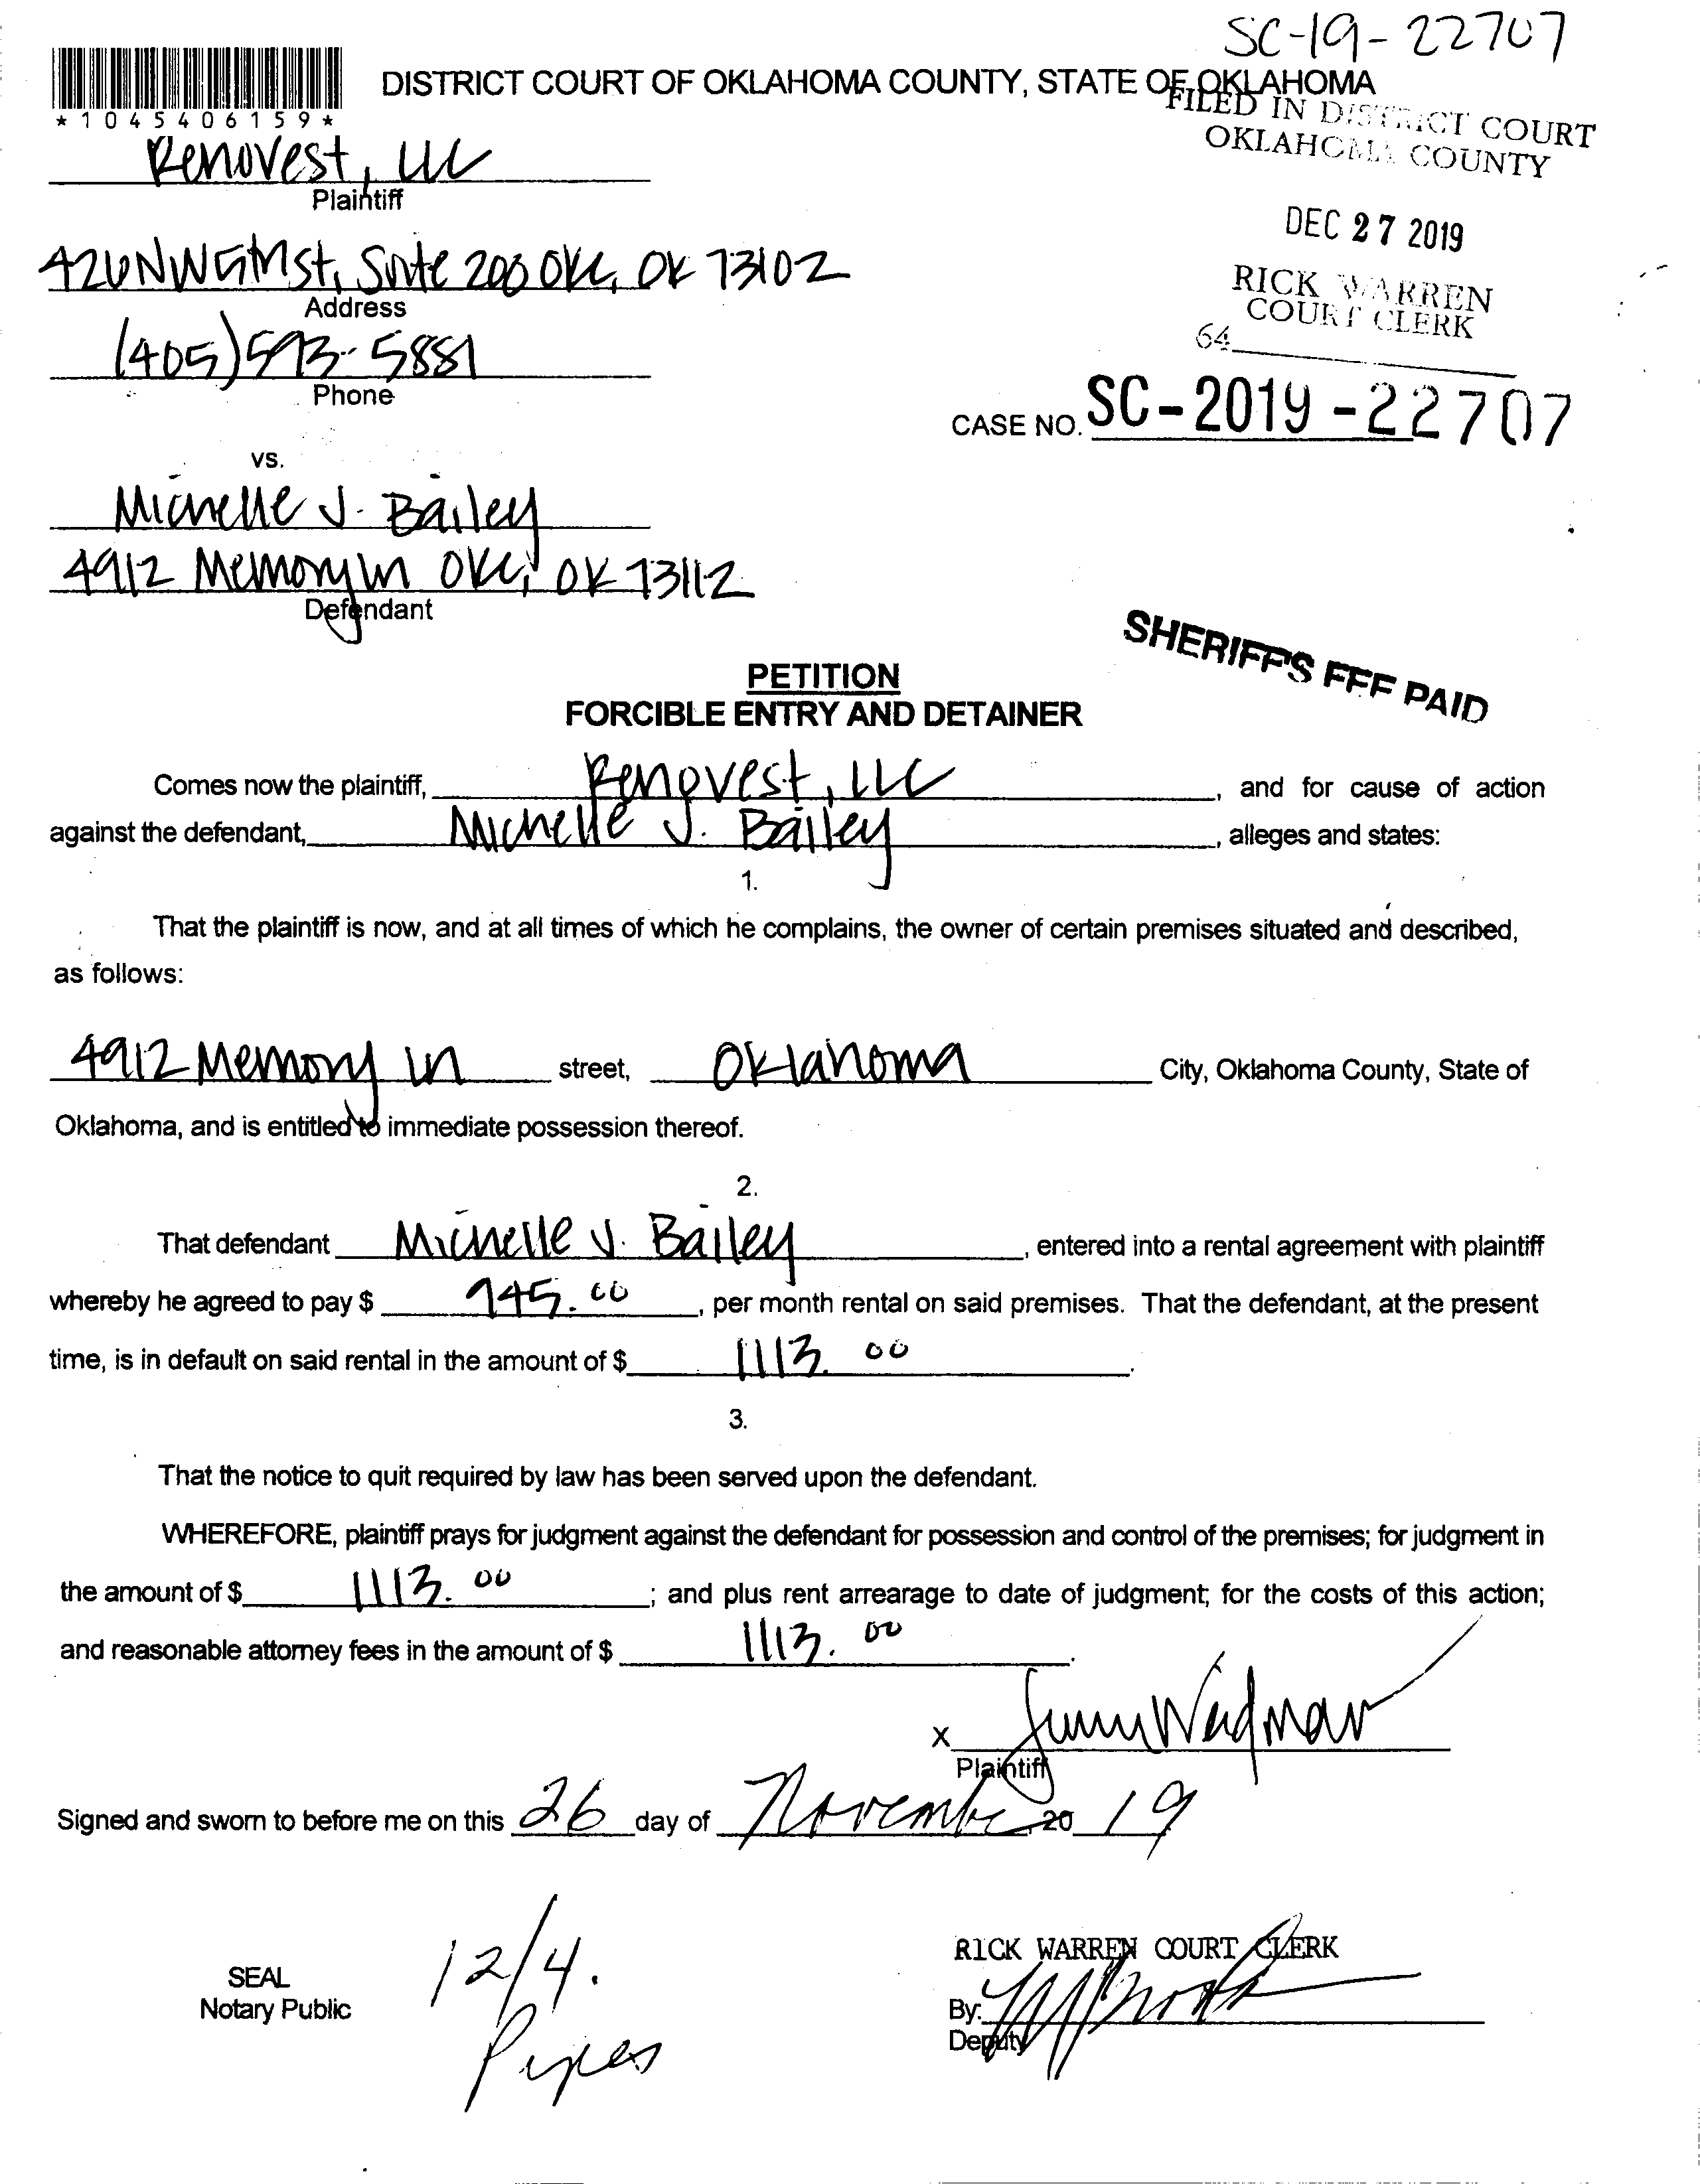 SC-19-22707
DISTRICT COURT OF OKLAHOMA COUNTY, STATE OF OKLAHOMA
*1045406159*
FILED IN DISTRICT COURT
OKLAHOMA COUNTY
Renovest, LLC
Plaintiff
DEC 27 2019
426 NW 5th St, Suite 200 OKC, OK 73102
Address
RICK WARREN
COURT CLERK
64
(405) 593-5881
Phone
CASE NO. SC-2019-22707
vs.
Michelle J. Bailey
4912 Memory Ln OKC, OK 73112
Defendant
SHERIFF'S FEE PAID
PETITION
FORCIBLE ENTRY AND DETAINER
Comes now the plaintiff, Renovest, LLC, and for cause of action
against the defendant, Michelle J. Bailey, alleges and states:
1.
That the plaintiff is now, and at all times of which he complains, the owner of certain premises situated and described,
as follows:
4912 Memory Ln street, Oklahoma City, Oklahoma County, State of
Oklahoma, and is entitled to immediate possession thereof.
2.
That defendant Michelle J. Bailey, entered into a rental agreement with plaintiff
whereby he agreed to pay $ 945.00, per month rental on said premises. That the defendant, at the present
time, is in default on said rental in the amount of $ 1113.00.
3.
That the notice to quit required by law has been served upon the defendant.
WHEREFORE, plaintiff prays for judgment against the defendant for possession and control of the premises; for judgment in
the amount of $ 1113.00; and plus rent arrearage to date of judgment; for the costs of this action;
and reasonable attorney fees in the amount of $ 1113.00.
X
Plaintiff
Signed and sworn to before me on this 26 day of November, 20 19
12/4.
RICK WARREN COURT CLERK
SEAL
Notary Public
By:
Deputy
Pipes